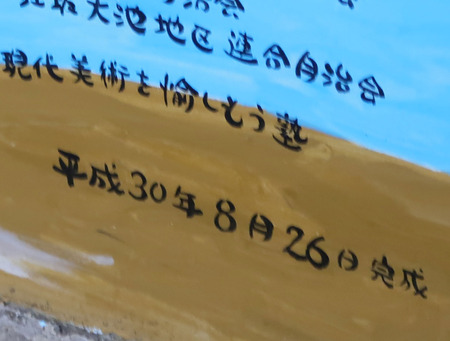 治会
大池地区連合自治会
現代美術を愉しもう塾
平成30年8月26日完成